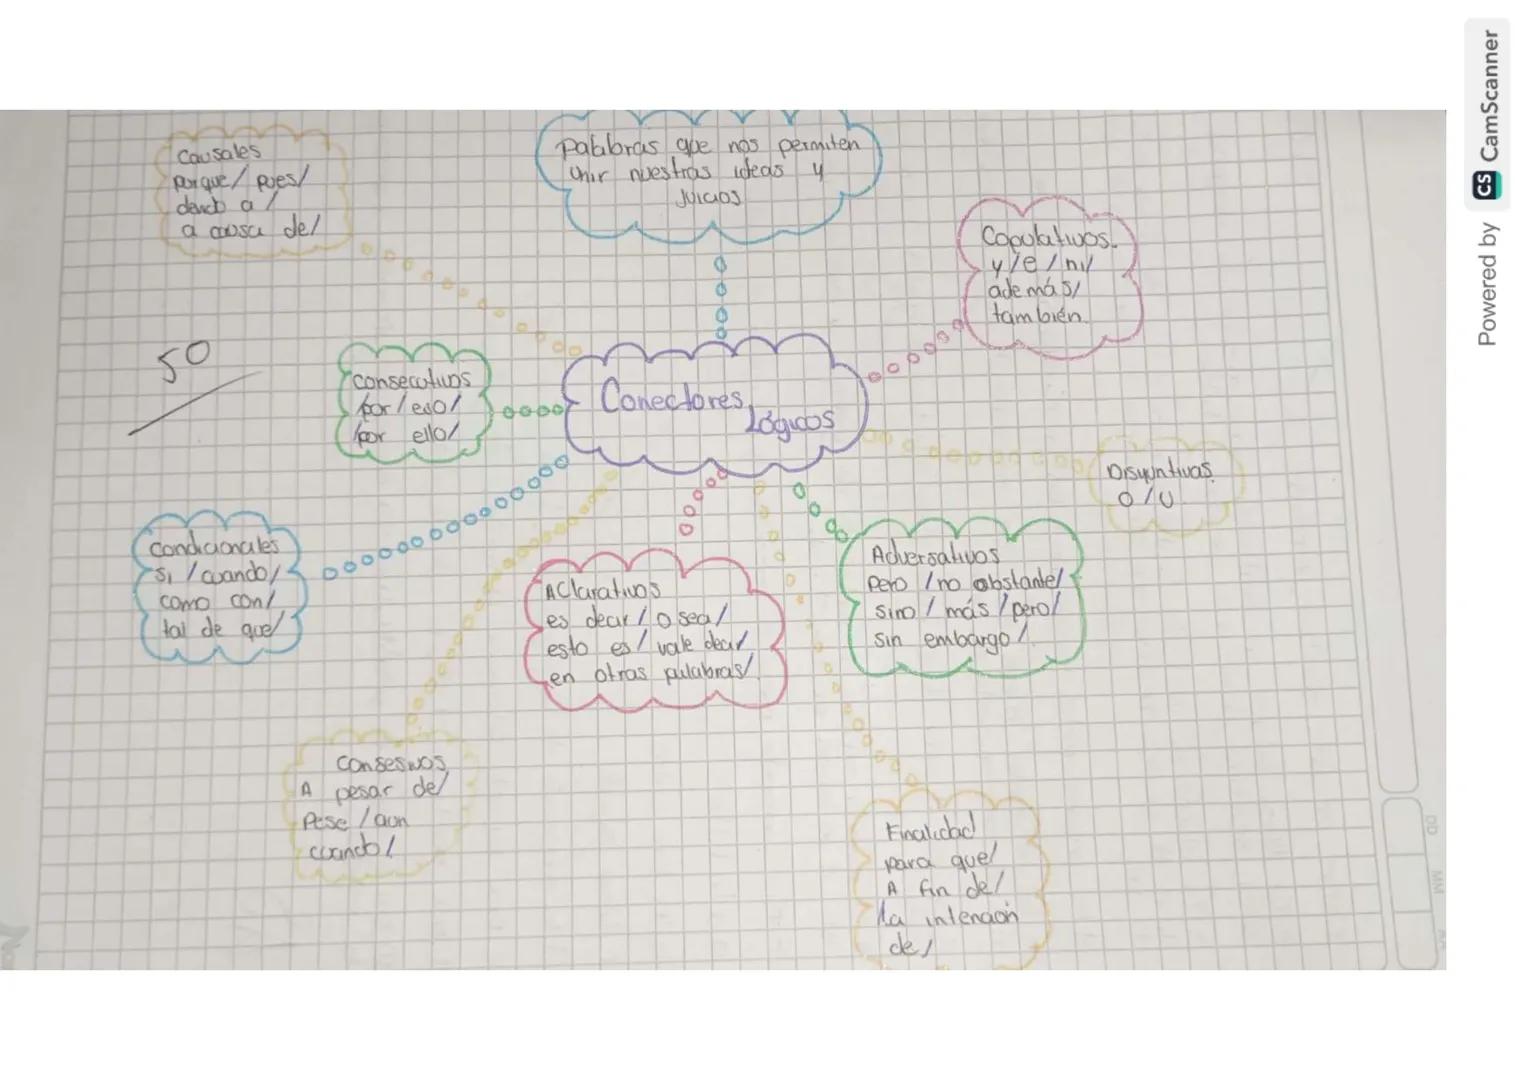 Causales
porque/ pues/
dendo a /
a causa de/
Palabras que nos permiten
unir nuestras ideas y
juicios
Copulativos.
y/e/ni/
además/
también.
50
consecutivos
por/eso/
por ello/
Conectores
Lógicos
Disyuntivas.
o/u
Condicionales
si / cuando/
como con/
tal de que/
Aclarativos
es decir/ o sea/
esto es/ vale decir/
en otras palabras/
Adversativos
Pero /no obstante/
sino / más /pero/
sin embargo /
Consesivos
A pesar de/
Pese /aun
cuando/
Finalidad
para que/
A fin de/
la intención
de/
DD
MM
Powered by CS CamScanner